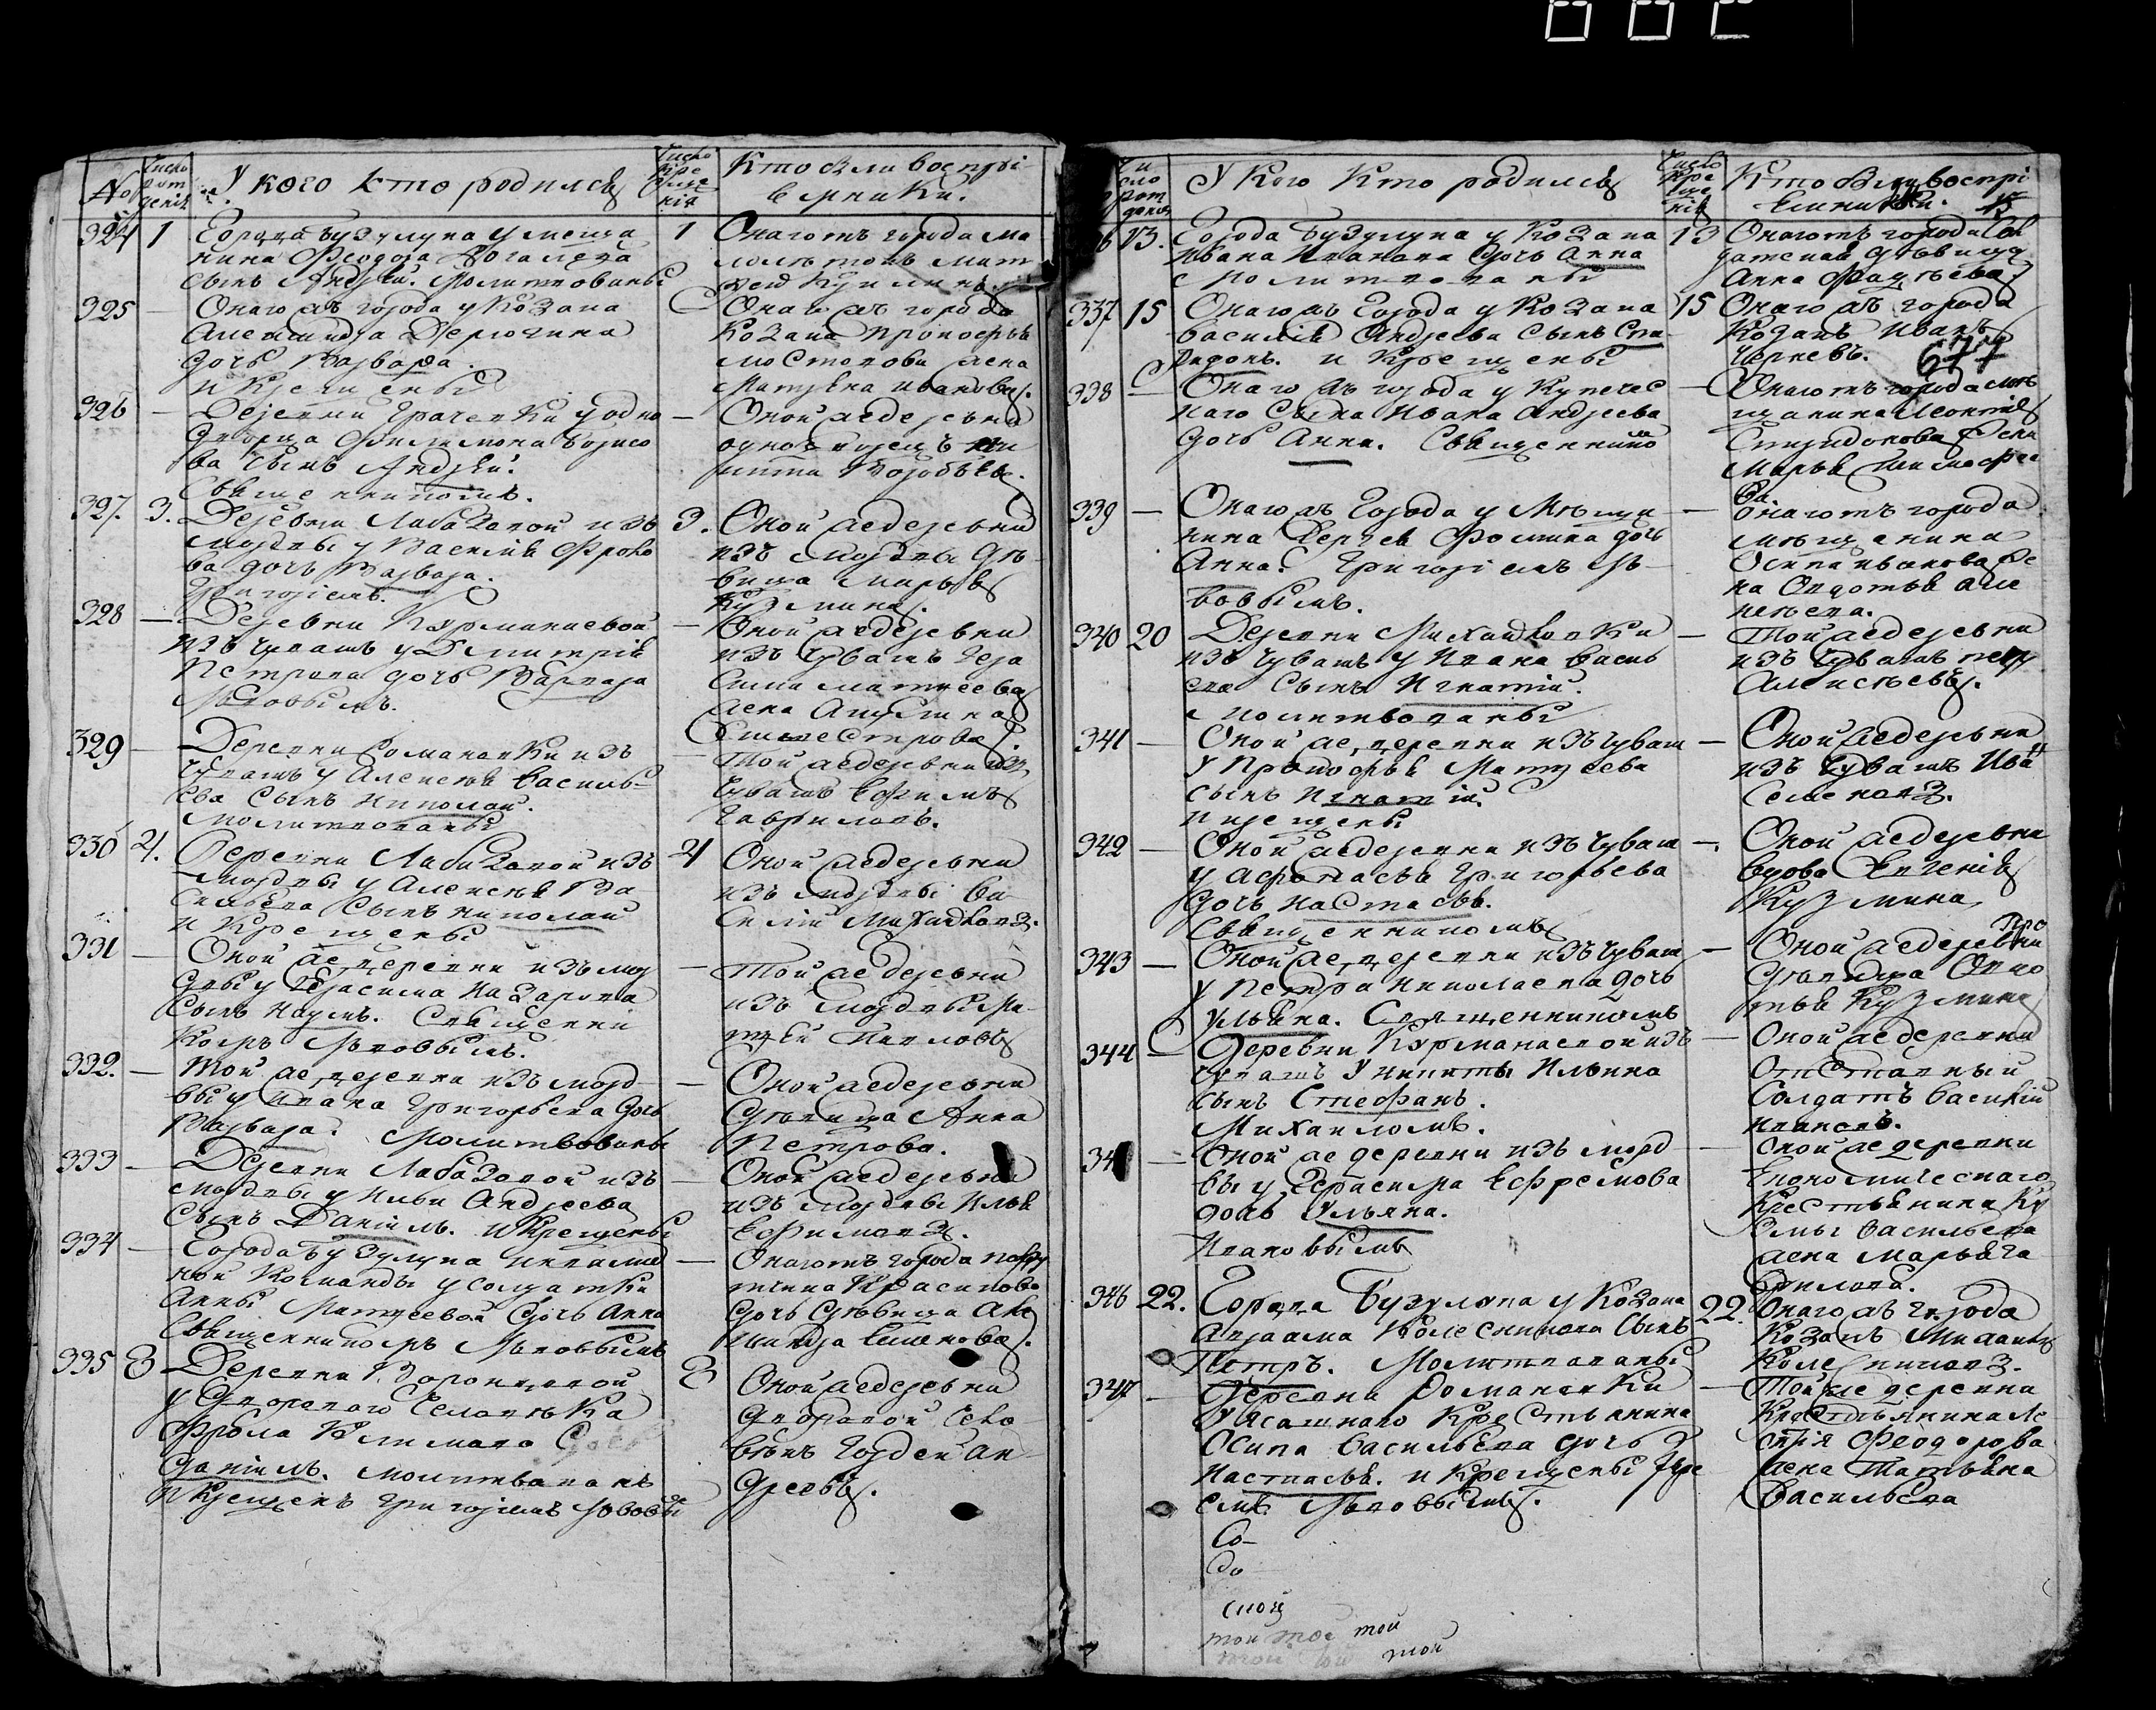 №
Число рожденія
У кого кто родился
Число крещенія
Кто были воспрі-
емники.
324
1
Города Бузулука у меща
нина Феодора
сынъ Андрей. Молитвованы
1
Онагожъ города ма
лолетокъ Мат
вей
325
—
Онагожъ города у козака
Александра Дерюгина
дочь Варвара.
и крещены
Онагожъ города
козака Прокофья
Мостовова жена
Матрена Иванова.
326
—
Деревни Грачевки у одно
дворца Филимона Борисо
ва сынъ Андрей.
Священникомъ.
—
Оной же деревни
однодворецъ Ни
кита Воробьевъ.
327.
3.
Деревни Лабазовой изъ
мордвы у Василья Фроло
ва дочь Варвара.
Григоріемъ.
3.
Оной же деревни
изъ мордвы дѣ-
вица Марья
Кузмина.
328
—
Деревни Курманаевой
изъ чувашъ у Димитрія
Петрова дочь Варвара
Львовымъ.
—
Оной же деревни
изъ чувашъ Гера
сима Матвеева
жена Акулина
Петрова.
329
—
Деревни Романовки изъ
чувашъ у Алексѣя Василь-
ева сынъ Николай.
молитвованы
—
Той же деревни изъ
чувашъ Ефимъ
Гавриловъ.
330
4.
Деревни Лабазовой изъ
мордвы у Алексѣя Ва-
сильева сынъ Николай
и крещены
4
Оной же деревни
изъ мордвы Ва-
силій Михайловъ.
331
—
Оной же деревни изъ мор
двы у Герасима Назарова
сынъ Наумъ. Священни
комъ Львовымъ.
—
Той же деревни
изъ мордвы Ма-
твей Павловъ
332.
—
Той же деревни изъ морд
вы у Ивана Григорьева дочь
Варвара. Молитвованы
—
Оной же деревни
дѣвица Анна
Петрова.
333
—
Деревни Лабазовой изъ
мордвы у Ильи Андреева
сынъ Даніилъ. и крещены
—
Оной же деревни
изъ мордвы Илья
Ефимовъ.
334
—
Города Бузулука инвалид
ной команды у солдатки
Анны Матвеевой дочь Анна
Священникомъ Львовымъ
—
Онагожъ города пору
тчика Красикова
дочь дѣвица Але
ксандра Семенова.
335
8
Деревни Воронцовой
у двороваго человѣка
Фрола Климова
Даніилъ. молитвованъ
и крещенъ Григоріемъ Львовы
8
Оной же деревни
дворовой чело-
вѣкъ Гордей Ан-
дреевъ.
Число рожденія
У кого кто родился
Число крещенія
Кто были воспрі
емники.
13.
Города Бузулука у козака
Ивана Иванова дочь Анна
молитвованы
13
Онагожъ города сол
датская дѣвица
Анна
337
15
Онагожъ города у козака
Василія Андреева сынъ Спи
ридонъ. и крещены
15
Онагожъ города
козакъ Иванъ
Черневъ.
677
338
—
Онагожъ города у купечес
каго сына Ивана Андреева
дочь Анна. Священнико
—
Онагожъ города мѣ
щанина Леонтія
Спиридонова жена
Марья Тимофее
ва.
339
—
Онагожъ города у мѣща
нина Сергея Фомина дочь
Анна. Григоріемъ Ль-
вовымъ.
—
Онагожъ города
мѣщанина
Осипа Иванова же
на Авдотья Але
ксѣева.
340
20
Деревни Михайловки
изъ чувашъ у Ивана Василь
ева сынъ Игнатій.
молитвованы
—
Той же деревни
изъ чувашъ Петръ
Алексѣевъ.
341
—
Оной же деревни изъ чуваш
у Прокофья Матвеева
сынъ Игнатій.
крещены
—
Оной же деревни
изъ чувашъ Иванъ
Семеновъ.
342
—
Оной же деревни изъ чуваш
у Афонасья Григорьева
дочь Настасья.
Священникомъ
—
Оной же деревни
вдова Евгенія
Кузмина
343
—
Оной же деревни изъ чуваш
у Петра Николаева дочь
Ульяна. Священникомъ
—
Оной же деревни
дѣвица Авдо
тья Кузмина
344
—
Деревни Курманаевой изъ
чувашъ у Никиты Ильина
сынъ Стефанъ.
Михаиломъ.
—
Оной же деревни
отставный
солдатъ Василій
Ивановъ.
34
—
Оной же деревни изъ морд
вы у Герасима Ефремова
дочь Ульяна.
Ивановымъ
—
Оной же деревни
економическаго
крестьянина Ку
змы Васильева
жена Марья Га
врилова.
346
22.
Города Бузулука у козака
Абраама Колесникова сынъ
Петръ. Молитвованы
22.
Онагожъ города
козакъ Михаилъ
Колесниковъ.
347
—
Деревни Романовки
у ясашнаго крестьянина
Осипа Васильева дочь
Настасья. и крещены Григорі
емъ Львовымъ.
—
Той же деревни
крестьянина
Феодорова
жена Татьяна
Васильева
Со-
до
той тое той
той той